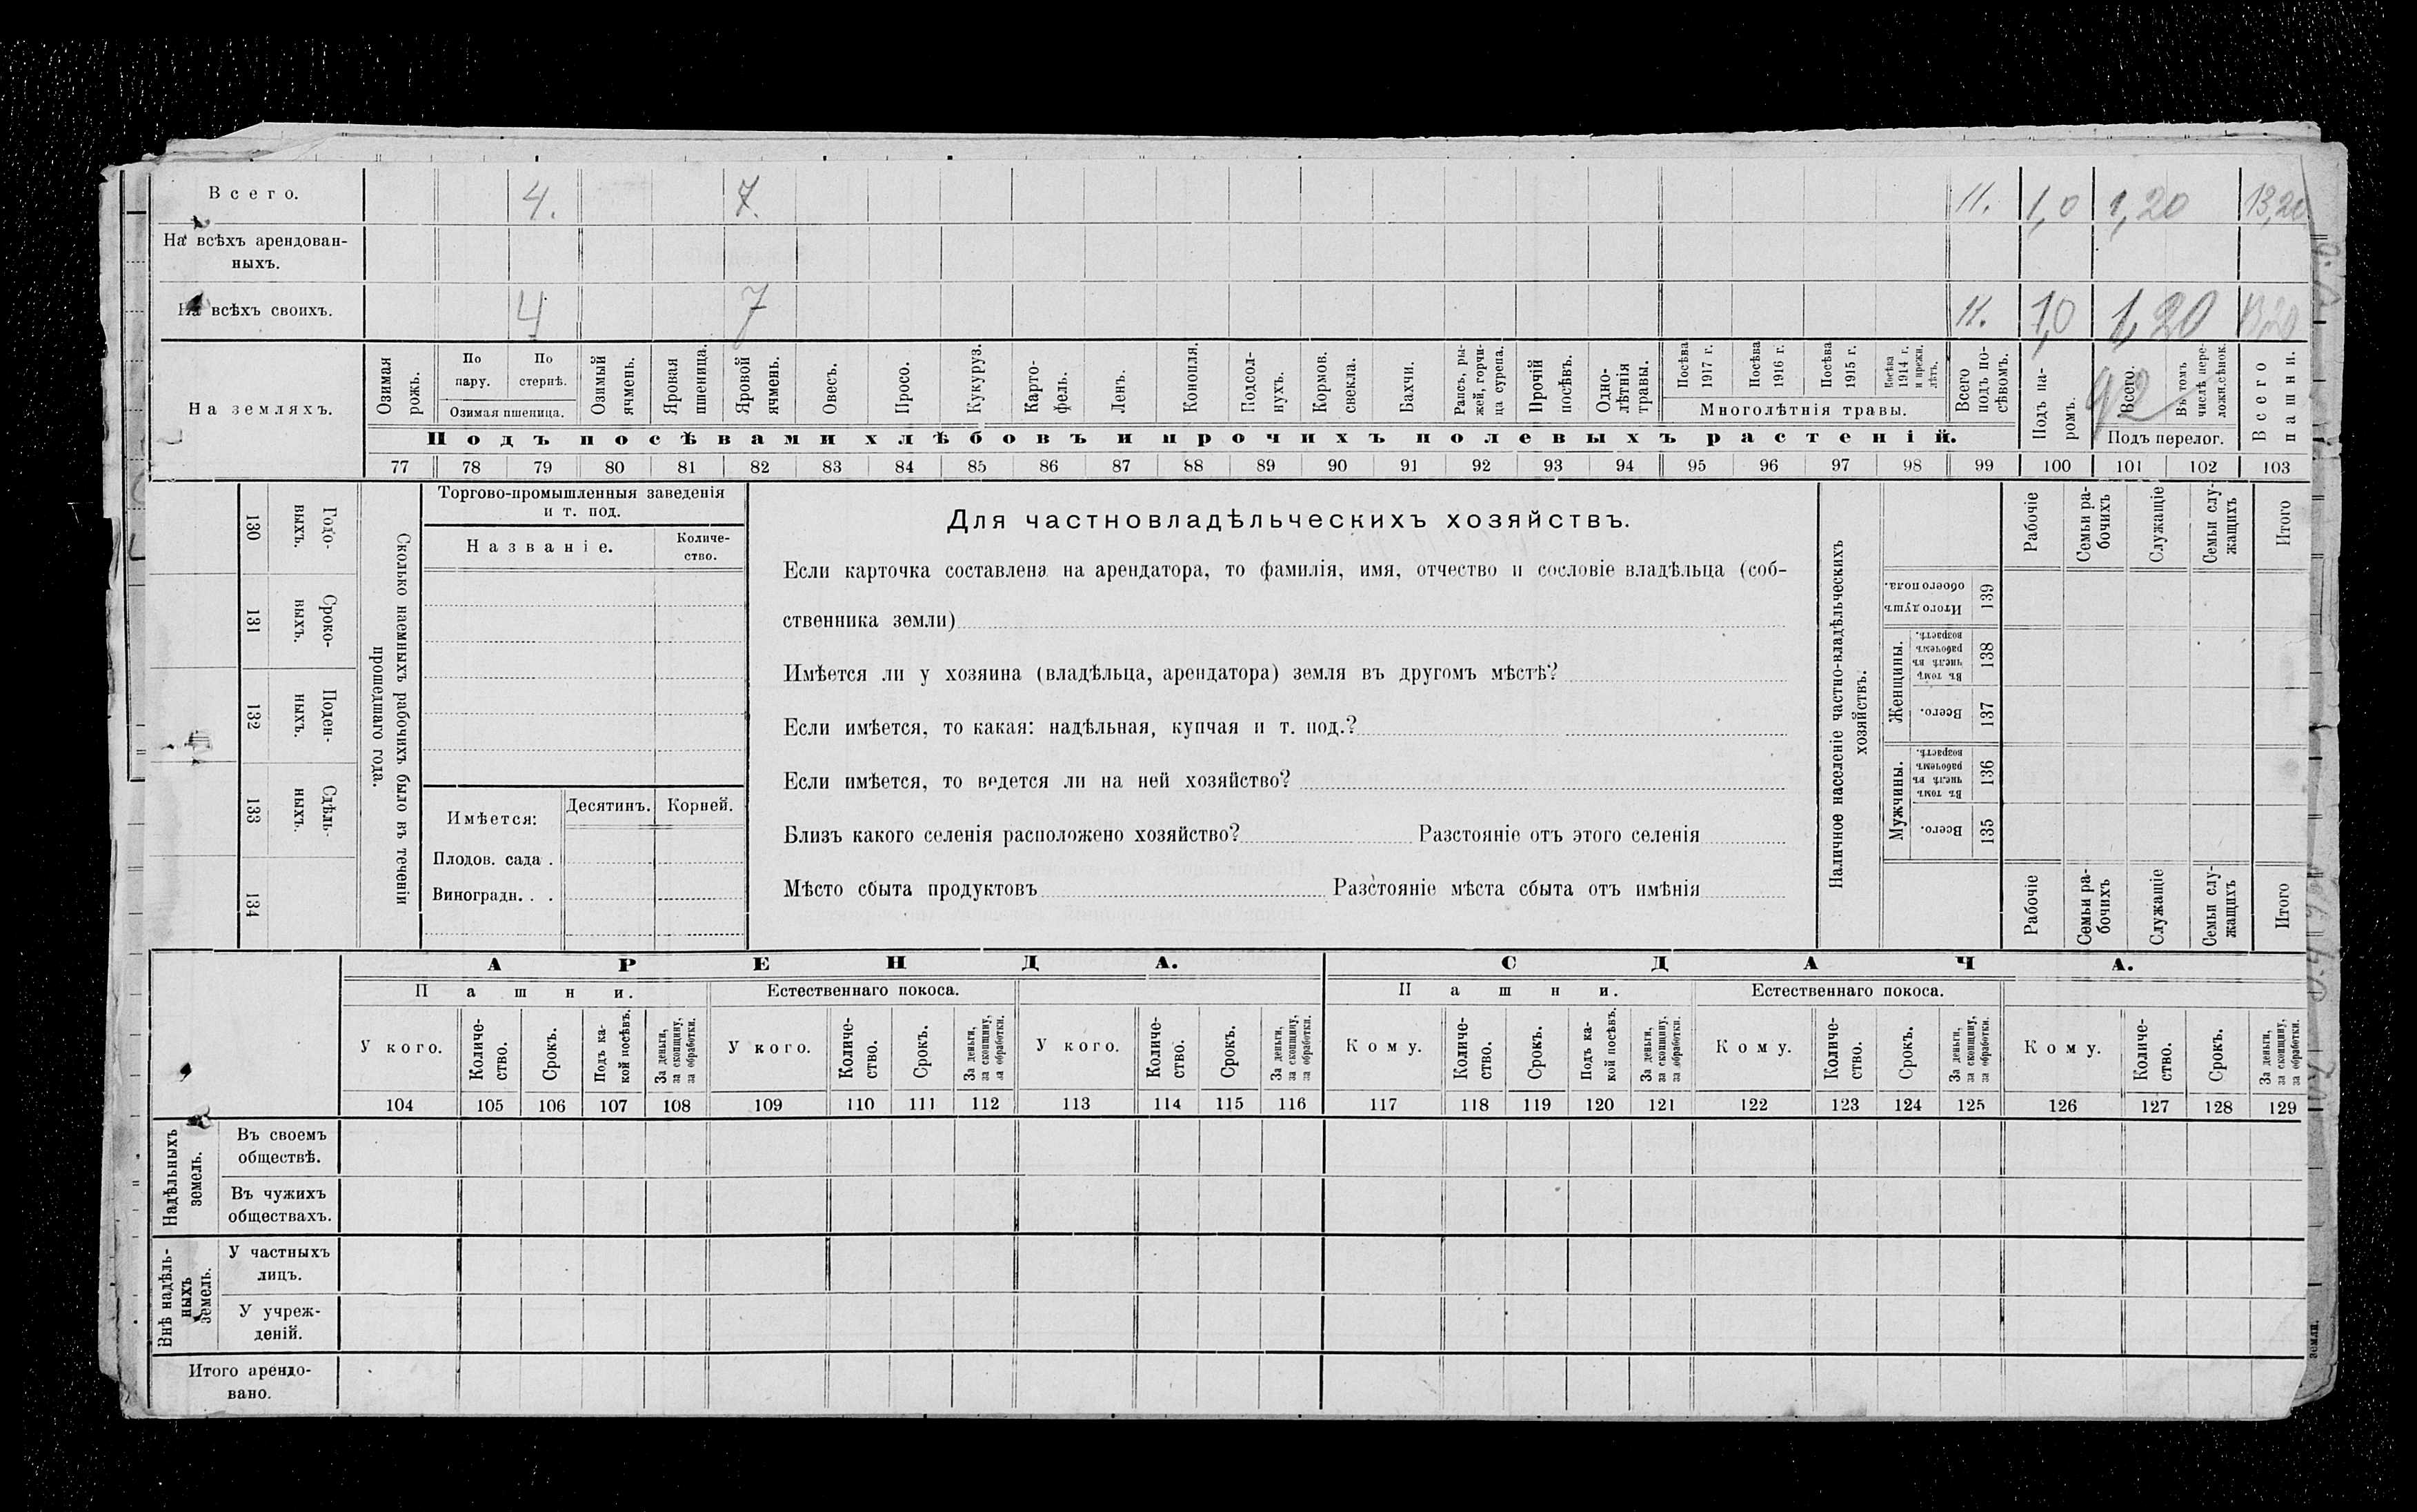 Всего. 4. 7. 11. 1,0 1,20 13,20
На всѣхъ арендован-
ныхъ.
На всѣхъ своихъ. 4 7 11. 1,0 1,20
На земляхъ.
Озимая рожь.
По пару.
По стернѣ.
Озимая пшеница.
Озимый ячмень.
Яровая пшеница.
Яровой ячмень.
Овесъ.
Просо.
Кукуруз.
Карто-
фель.
Ленъ.
Конопля.
Подсол-
нухъ.
Кормов.
свекла.
Бахчи.
Рапсъ, ры-
жей, горчи-
ца сурепа.
Прочій
посѣвъ.
Одно-
лѣтнія
травы.
Посѣва
1917 г.
Посѣва
1916 г.
Посѣва
1915 г.
Посѣва
1914 г.
и прежн.
лѣтъ.
Многолѣтнія травы.
Всего
подъ по-
сѣвомъ.
Подъ па-
ромъ.
Всего.
Въ томъ
числѣ пере-
ложн.сѣнок.
Подъ перелог.
92
Всего
пашни.
Подъ посѣвами хлѣбовъ и прочихъ полевыхъ растеній.
77 78 79 80 81 82 83 84 85 86 87 88 89 90 91 92 93 94 95 96 97 98 99 100 101 102 103
130 Годо-
выхъ.
131 Сроко-
выхъ.
132 Поден-
ныхъ.
133 Сдѣль-
ныхъ.
134
Сколько наемныхъ рабочихъ было въ теченіи
прошедшаго года.
Торгово-промышленныя заведенія
и т. под.
Названіе.
Количе-
ство.
Имѣется:
Десятинъ.
Корней.
Плодов. сада .
Виноградн. . .
Для частновладѣльческихъ хозяйствъ.
Если карточка составлена на арендатора, то фамилія, имя, отчество и сословіе владѣльца (соб-
ственника земли)
Имѣется ли у хозяина (владѣльца, арендатора) земля въ другомъ мѣстѣ?
Если имѣется, то какая: надѣльная, купчая и т. под.?
Если имѣется, то ведется ли на ней хозяйство?
Близъ какого селенія расположено хозяйство? Разстояніе отъ этого селенія
Мѣсто сбыта продуктовъ Разстояніе мѣста сбыта отъ имѣнія
Наличное населеніе частно-владѣльческихъ
хозяйствъ.
Рабочіе
Семьи ра-
бочихъ
Служащіе
Семьи слу-
жащихъ
Итого
Итого душъ
обоего пола.
139
Женщины.
Въ томъ
числѣ въ
рабочемъ
возрастѣ.
138
Всего.
137
Мужчины.
Въ томъ
числѣ въ
рабочемъ
возрастѣ.
136
Всего.
135
Рабочіе
Семьи ра-
бочихъ
Служащіе
Семьи слу-
жащихъ
Итого
АРЕНДА. СДАЧА.
Пашни. Естественнаго покоса. Пашни. Естественнаго покоса.
У кого.
Количе-
ство.
Срокъ.
Подъ ка-
кой посѣвъ.
За деньги,
за скопщину,
за обработки.
У кого.
Количе-
ство.
Срокъ.
За деньги,
за скопщину,
за обработки.
У кого.
Количе-
ство.
Срокъ.
За деньги,
за скопщину,
за обработки.
Кому.
Количе-
ство.
Срокъ.
Подъ ка-
кой посѣвъ.
За деньги,
за скопщину,
за обработки.
Кому.
Количе-
ство.
Срокъ.
За деньги,
за скопщину,
за обработки.
Кому.
Количе-
ство.
Срокъ.
За деньги,
за скопщину,
за обработки.
104 105 106 107 108 109 110 111 112 113 114 115 116 117 118 119 120 121 122 123 124 125 126 127 128 129
Надѣльныхъ
земель.
Въ своемъ
обществѣ.
Въ чужихъ
обществахъ.
Внѣ надѣль-
ныхъ
земель.
У частныхъ
лицъ.
У учреж-
деній.
Итого арендо-
вано.
земли.